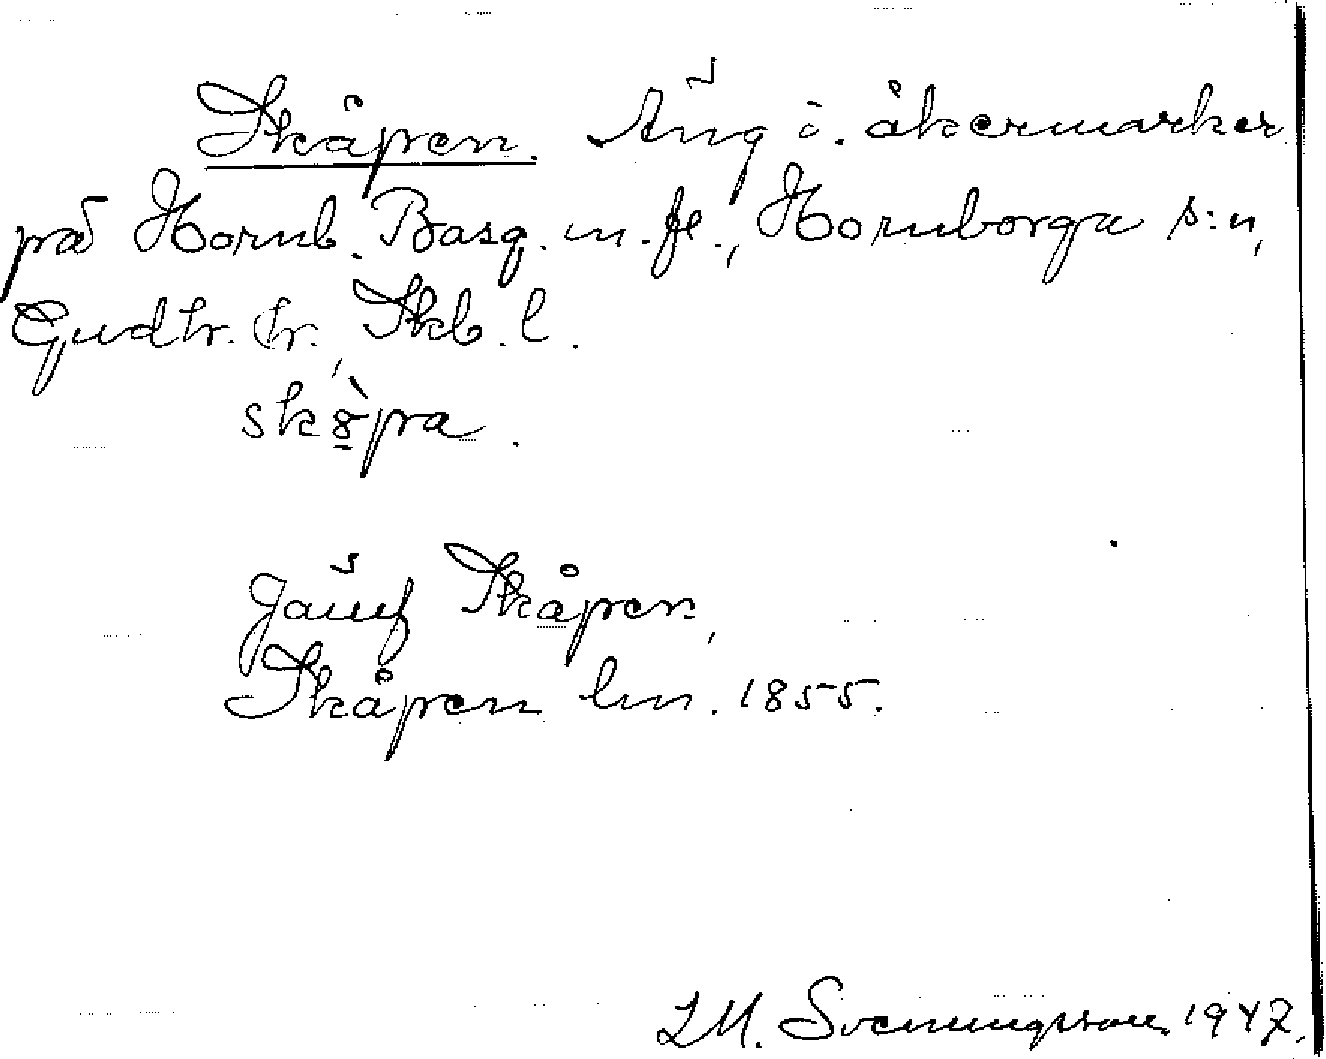 Skåpen. Äng i. åkermarker
på Hornb. Basg. m.fl., Hornborga s:n,
Gudh. hr., Skb. l.
skȣ̀pa.
Jämf Skåpen,
Skåpen lm. 1855.
I.M. Svenungsson 1947.